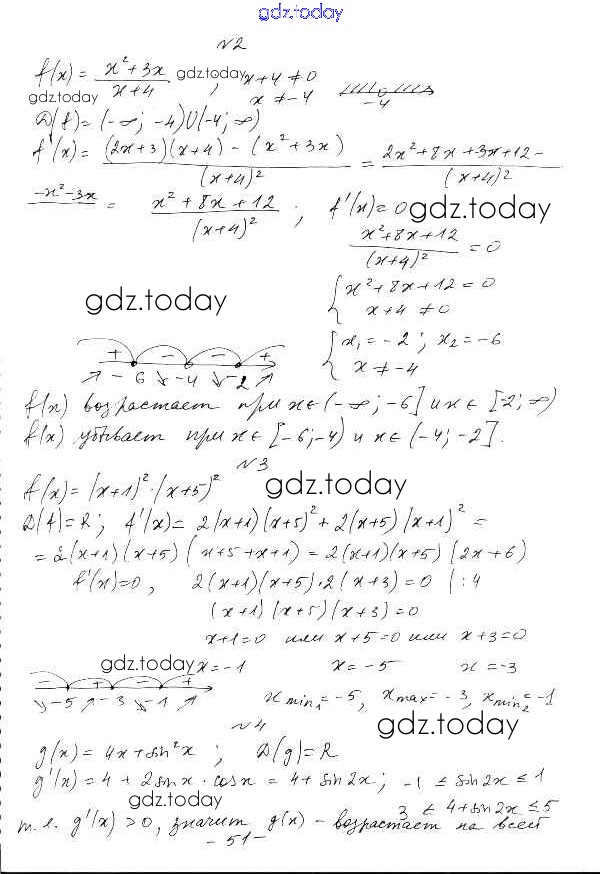 gdz.today
№2
f(x) = (x²+3x)/(x+4) gdz.today ; x+4 ≠ 0
gdz.today x ≠ -4 -4
D(f) = (-∞; -4)∪(-4; ∞)
f'(x) = ((2x+3)(x+4) - (x²+3x))/(x+4)² = (2x²+8x+3x+12-
-x²-3x)/(x+4)² = (x²+8x+12)/(x+4)² ; f'(x)=0 gdz.today
(x²+8x+12)/(x+4)² = 0
gdz.today { x²+8x+12=0
x+4 ≠ 0
+ - - + { x₁=-2; x₂=-6
↗ -6 ↘ -4 ↘ -2 ↗ x ≠ -4
f(x) возрастает при x∈(-∞; -6] и x∈[-2; ∞)
f(x) убывает при x∈[-6; -4) и x∈(-4; -2].
№3
f(x) = (x+1)²·(x+5)² gdz.today
D(f)=R; f'(x) = 2(x+1)(x+5)²+2(x+5)(x+1)² =
= 2(x+1)(x+5)(x+5+x+1) = 2(x+1)(x+5)(2x+6)
f'(x)=0, 2(x+1)(x+5)·2(x+3)=0 |:4
(x+1)(x+5)(x+3)=0
x+1=0 или x+5=0 или x+3=0
gdz.today x=-1 x=-5 x=-3
- + - +
↘ -5 ↗ -3 ↘ -1 ↗ x min₁=-5, x max=-3, x min₂=-1
№4 gdz.today
g(x) = 4x+sin²x ; D(g)=R
g'(x) = 4+2sinx·cosx = 4+sin2x; -1 ≤ sin2x ≤ 1
gdz.today 3 ≤ 4+sin2x ≤ 5
т.е. g'(x)>0, значит g(x) - возрастает на всей
- 51 -